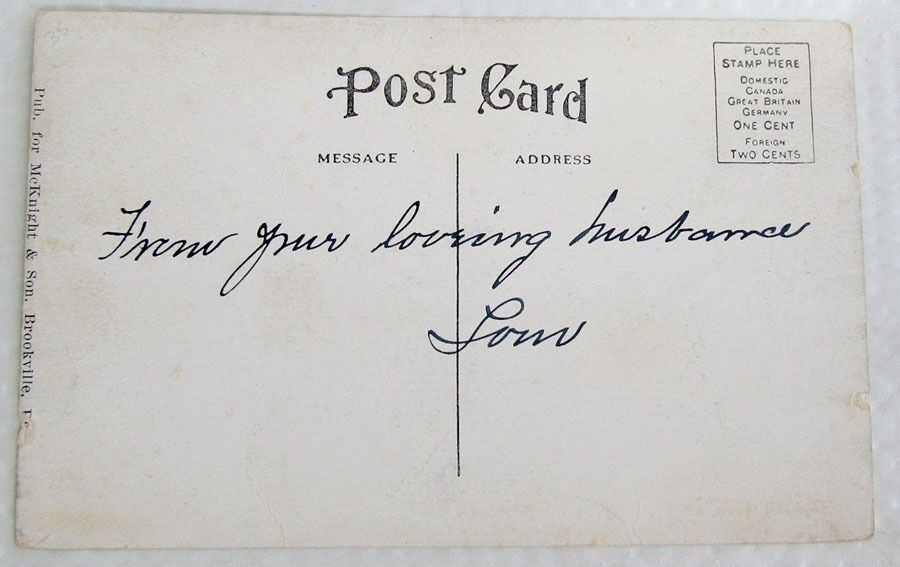 35
Post Card
PLACE
STAMP HERE
DOMESTIC
CANADA
GREAT BRITAIN
GERMANY
ONE CENT
FOREIGN
TWO CENTS
MESSAGE
ADDRESS
From your loving husband
Tom
Pub. for McKnight & Son, Brookville,